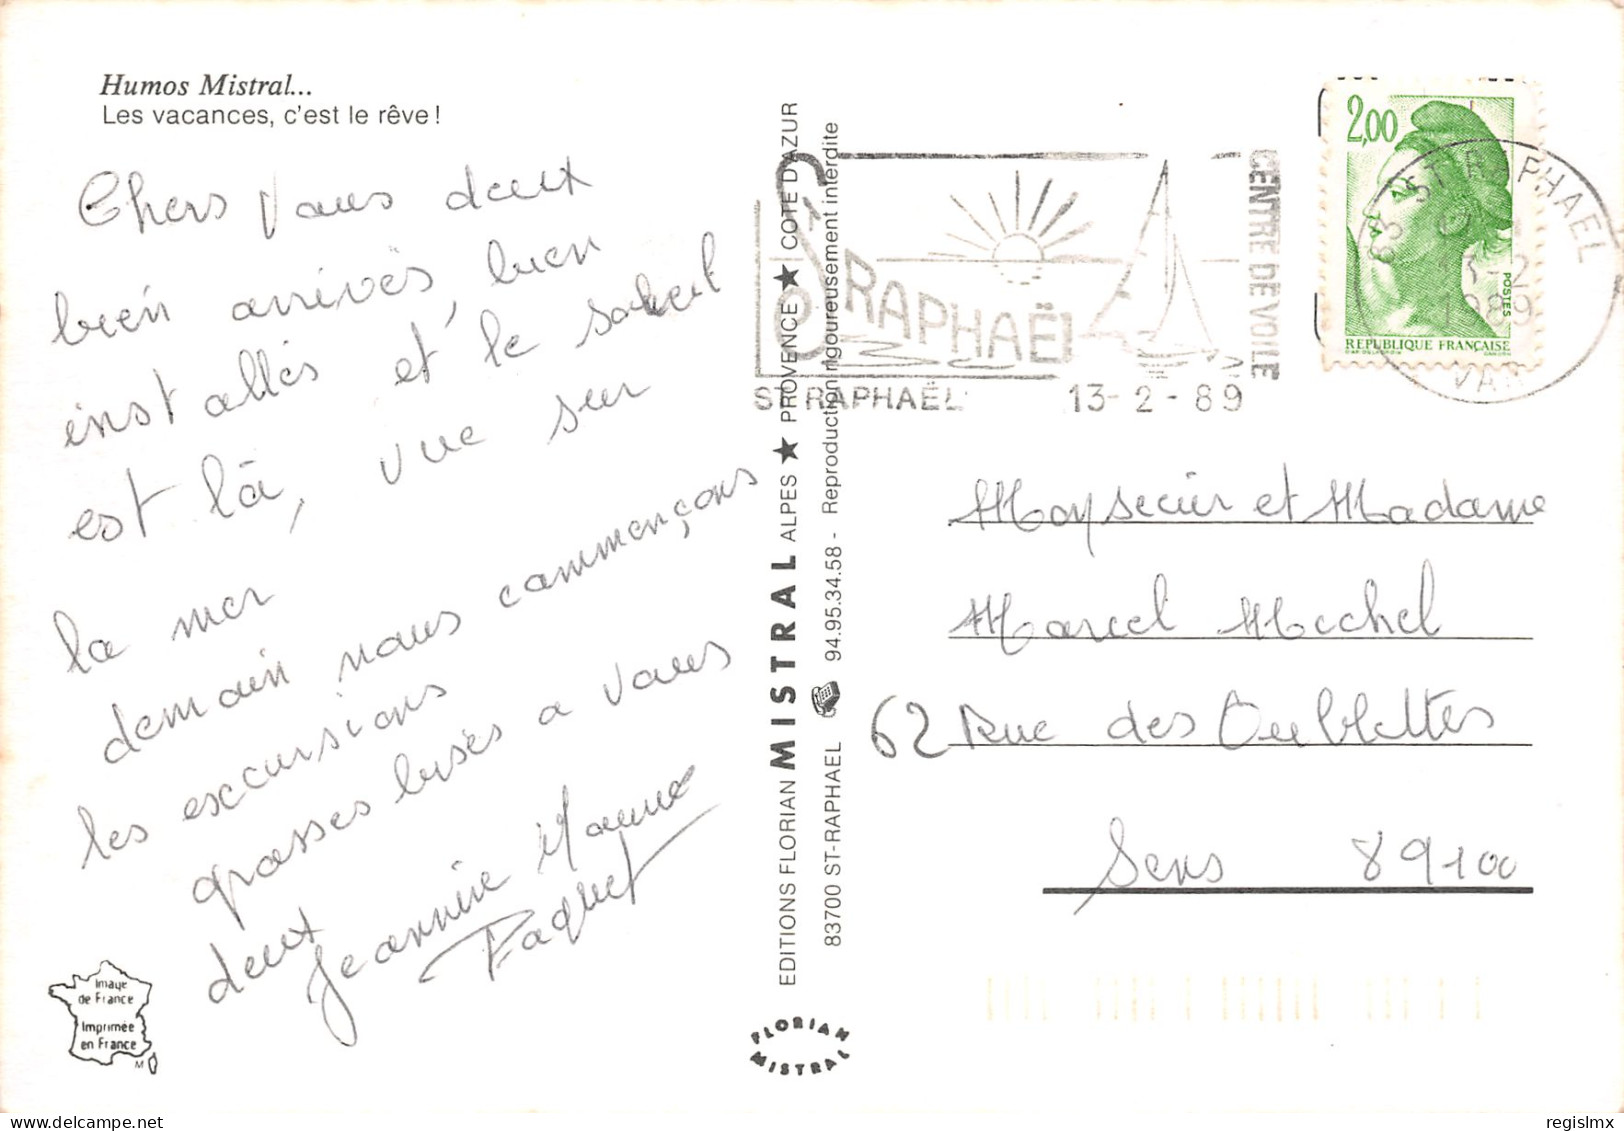 Humos Mistral...
Les vacances, c'est le rêve !
Chers vous deux
bien arrivés, bien
installés et le soleil
est là, vue sur
la mer
demain nous commençons
les excursions
grosses bises a vous
deux
Jeannine
Paquet
Image
de France
Imprimée
en France
EDITIONS FLORIAN MISTRAL ALPES ★ PROVENCE ★ COTE D'AZUR
83700 ST-RAPHAEL 94.95.34.58 - Reproduction rigoureusement interdite
FLORIAN
MISTRAL
ST RAPHAËL
CENTRE DE VOILE
ST RAPHAËL 13-2-89
2,00
POSTES
REPUBLIQUE FRANÇAISE
83 ST RAPHAEL
13-2
1989
VAR
Monsieur et Madame
Marcel Michel
62 Rue des Oubliettes
Sens 89100
regislmx